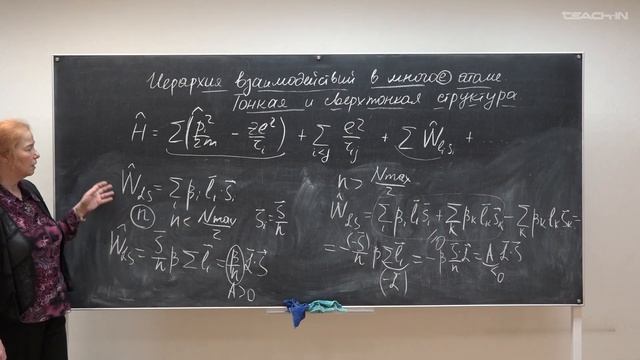 TEACH-IN
Иерархия взаимодействий в многоⓔ атоме.
Тонкая и сверхтонкая структура
Ĥ = Σ(p̂ᵢ²/2m − ze²/rᵢ) + Σ_{i<j} e²/rᵢⱼ + Σ Ŵ_{lᵢsᵢ} + ....
Ŵ_{LS} = Σᵢ βᵢ l⃗ᵢ s⃗ᵢ
ⓝ n < Nmax/2 s⃗ᵢ = S⃗/n
Ŵ_{LS} = S⃗/n β Σ l⃗ᵢ = (β/n) L⃗·S⃗
A>0
n > Nmax/2
Ŵ_{LS} = Σᵢ βᵢ l⃗ᵢ s⃗ᵢ + Σ_K β_K l⃗_K s⃗_K − Σ_K β_K l⃗_K s⃗_K =
= −(−S⃗)/n β Σ l⃗ᵢ = −β S⃗/n L⃗ = A L⃗·S⃗
(−L⃗) <0